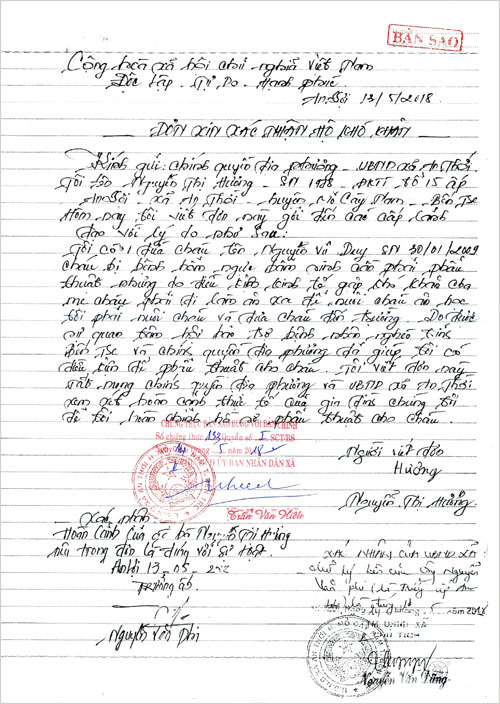 BẢN SAO
Cộng hòa xã hội chủ nghĩa Việt Nam
Độc lập - Tự Do - Hạnh phúc
An Lợi 13/5/2018
ĐƠN XIN XÁC NHẬN HỘ KHÓ KHĂN
Kính gửi: chính quyền địa phương - UBND xã An Thới
Tôi tên Nguyễn Thị Hường - SN 19 - ĐKTT tổ 15 ấp
xã An Thới - huyện Mỏ Cày Nam - Bến Tre
Hôm nay tôi viết đơn này gởi đến các cấp lãnh
đạo với lý do như sau:
Tôi có 1 đứa cháu tên Nguyễn Vũ Duy SN 30/01/2009
cháu bị bệnh bẩm sinh cần phải phẩu
thuật nhưng do điều kiện kinh tế gặp khó khăn cha
mẹ cháu phải đi làm ăn xa để nuôi cháu ăn học
tôi phải nuôi cháu và đưa cháu đến trường. Do được
sự quan tâm hội bảo trợ bệnh nhân nghèo tỉnh
Bến Tre và chính quyền địa phương đã giúp tôi có
điều kiện để phẩu thuật cho cháu. Tôi viết đơn này
rất mong chính quyền địa phương và UBND xã An Thới
xem xét hoàn cảnh thực tế của gia đình chúng tôi
để tôi hoàn thành hồ sơ phẩu thuật cho cháu.
CHỨNG THỰC BẢN SAO ĐÚNG VỚI BẢN CHÍNH
Số chứng thực 153 Quyển số I SCT/BS
Ngày tháng 5 năm 2018
ỦY BAN NHÂN DÂN XÃ
Trần Văn Hiền
Người viết đơn
Hường
Nguyễn Thị Hường
Xác nhận
Hoàn cảnh của bà Nguyễn Thị Hường
nêu trong đơn là đúng với sự thật
13-05-
Trưởng ấp
Nguyễn Văn Phi
XÁC NHẬN CỦA UBND XÃ
Nguyễn
Văn
tháng 5 năm 2018
TM. UBND XÃ
CHỦ TỊCH
Nguyễn Văn Dũng